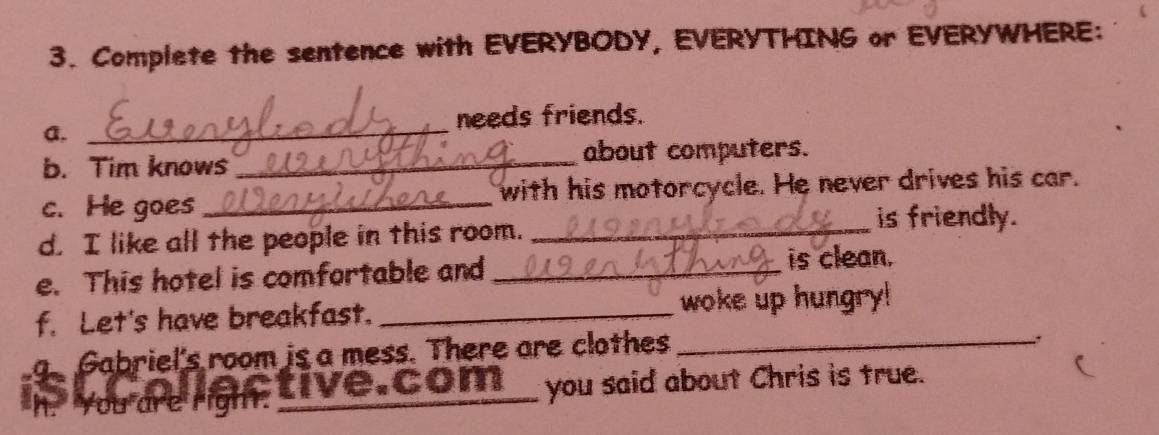 3. Complete the sentence with EVERYBODY, EVERYTHING or EVERYWHERE:
a. Everybody needs friends.
b. Tim knows everything about computers.
c. He goes everywhere with his motorcycle. He never drives his car.
d. I like all the people in this room. everybody is friendly.
e. This hotel is comfortable and everything is clean.
f. Let's have breakfast. __________ woke up hungry!
g. Gabriel's room is a mess. There are clothes __________.
iSLCollective.com
h. You are right. __________ you said about Chris is true.